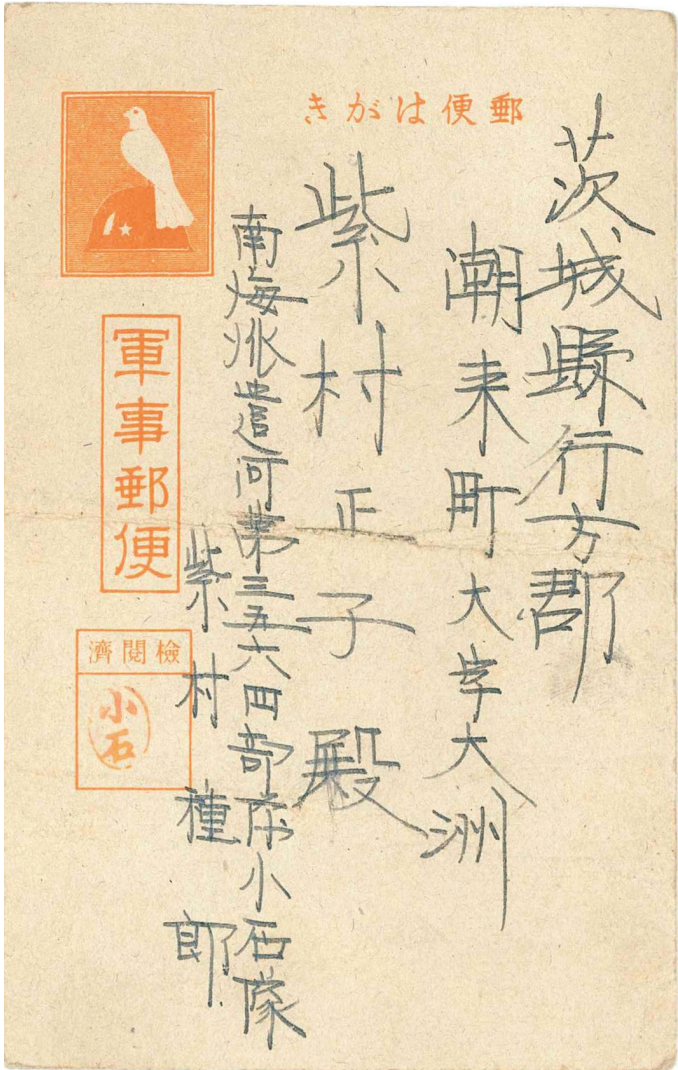 郵便はがき
茨城縣行方郡
潮来町大字大洲
紫村正子殿
南海派遣河第三五六四部隊小石隊
紫村種郎
軍事郵便
檢閲濟
小石